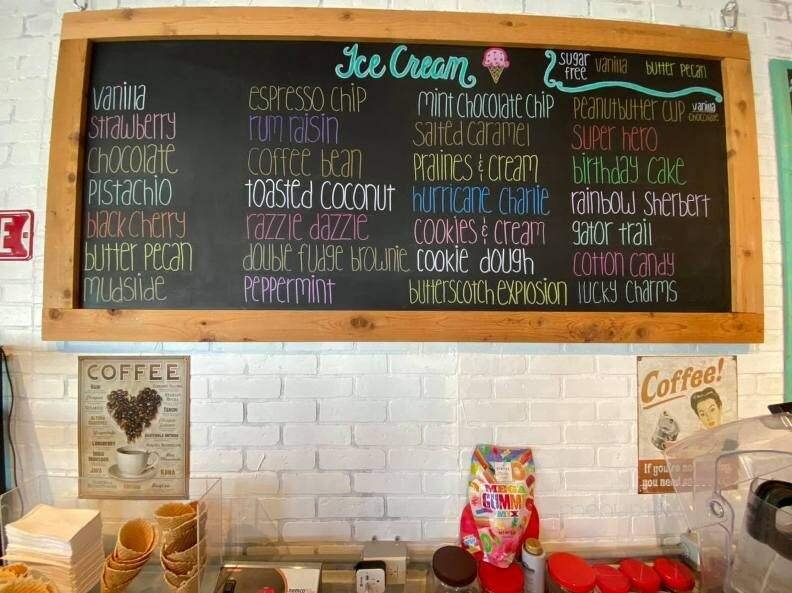 Ice Cream
sugar free vanilla butter pecan
vanilla
strawberry
chocolate
pistachio
black cherry
butter pecan
mudslide
espresso chip
rum raisin
coffee bean
toasted coconut
razzle dazzle
double fudge brownie
peppermint
mint chocolate chip
salted caramel
pralines & cream
hurricane charlie
cookies & cream
cookie dough
butterscotch explosion
peanutbutter cup vanilla chocolate
super hero
birthday cake
rainbow sherbert
gator trail
cotton candy
lucky charms
E
COFFEE
JAVA
KONA
Coffee!
If you're no
you need
MEGA
GUMMY
MIX